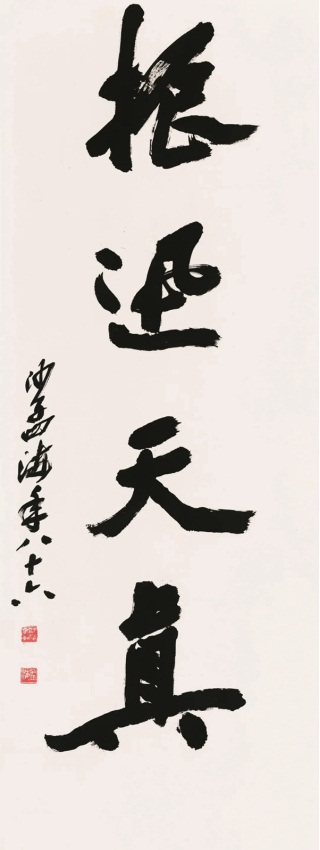 振迅天真
沙孟海年八十六